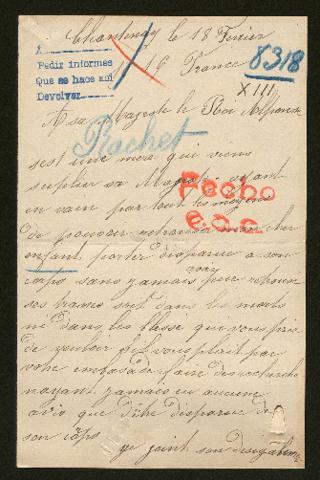 Chantenay le 18 Fevrier
1916 France
8318
Pedir informes
Que se hace aqui
Devolver
XIII
A sa Majesté le Roi Alphonse
Rachet
s'est une mere qui viens
suplier sa Majesté ayant
en vain par tout les moyens
Fecho
E.O.E.
de pouvoir retrouver mon cher
enfant porter disparue a son
corps sans jamais pour retrouver
ses traces soit dans les morts
ni dans les blesse que vous prie
de vouloir s'il vous plait par
votre embasade faire des recherche
nayant jamais eu aucune
avis que d'être disparue de
son corps
ge joint son